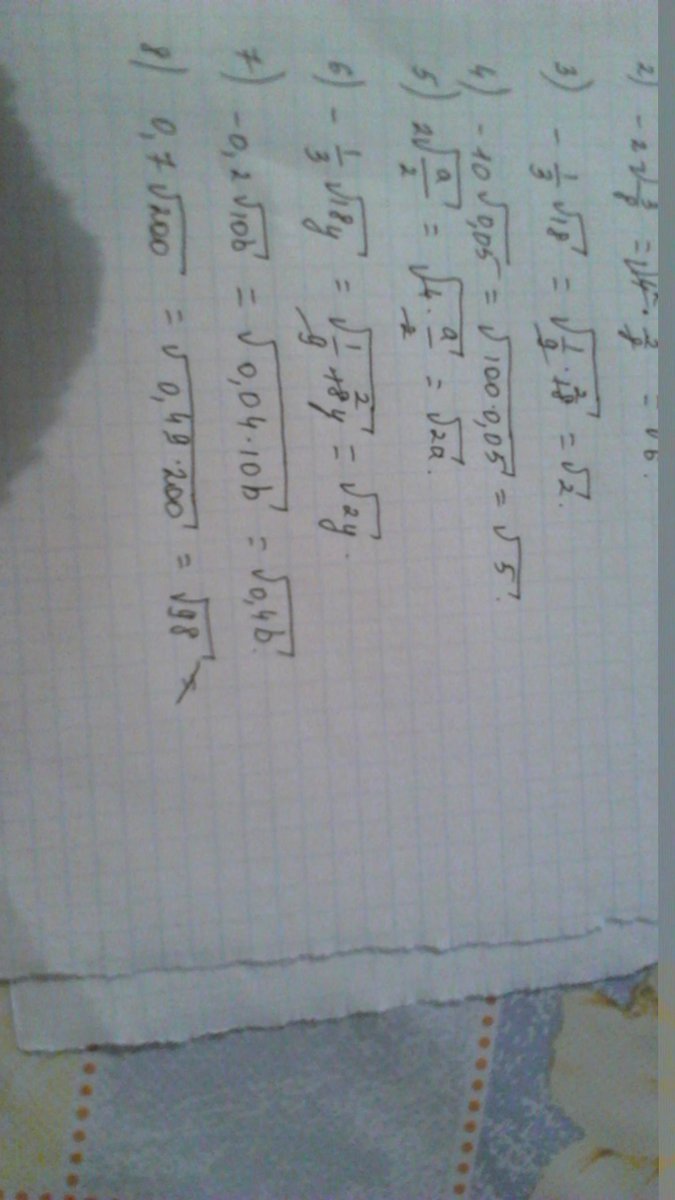 2) -2√ = √4 · =
3) -1/3 √18 = √(1/9 · 18) 2 = √2.
4) -10√0,05 = √100·0,05 = √5.
5) 2√(a/2) = √(4 · a/2) = √2a.
6) -1/3 √18y = √(1/9 · 18y) 2 = √2y.
7) -0,2√10b = √0,04·10b = √0,4b.
8) 0,7√200 = √0,49·200 = √98